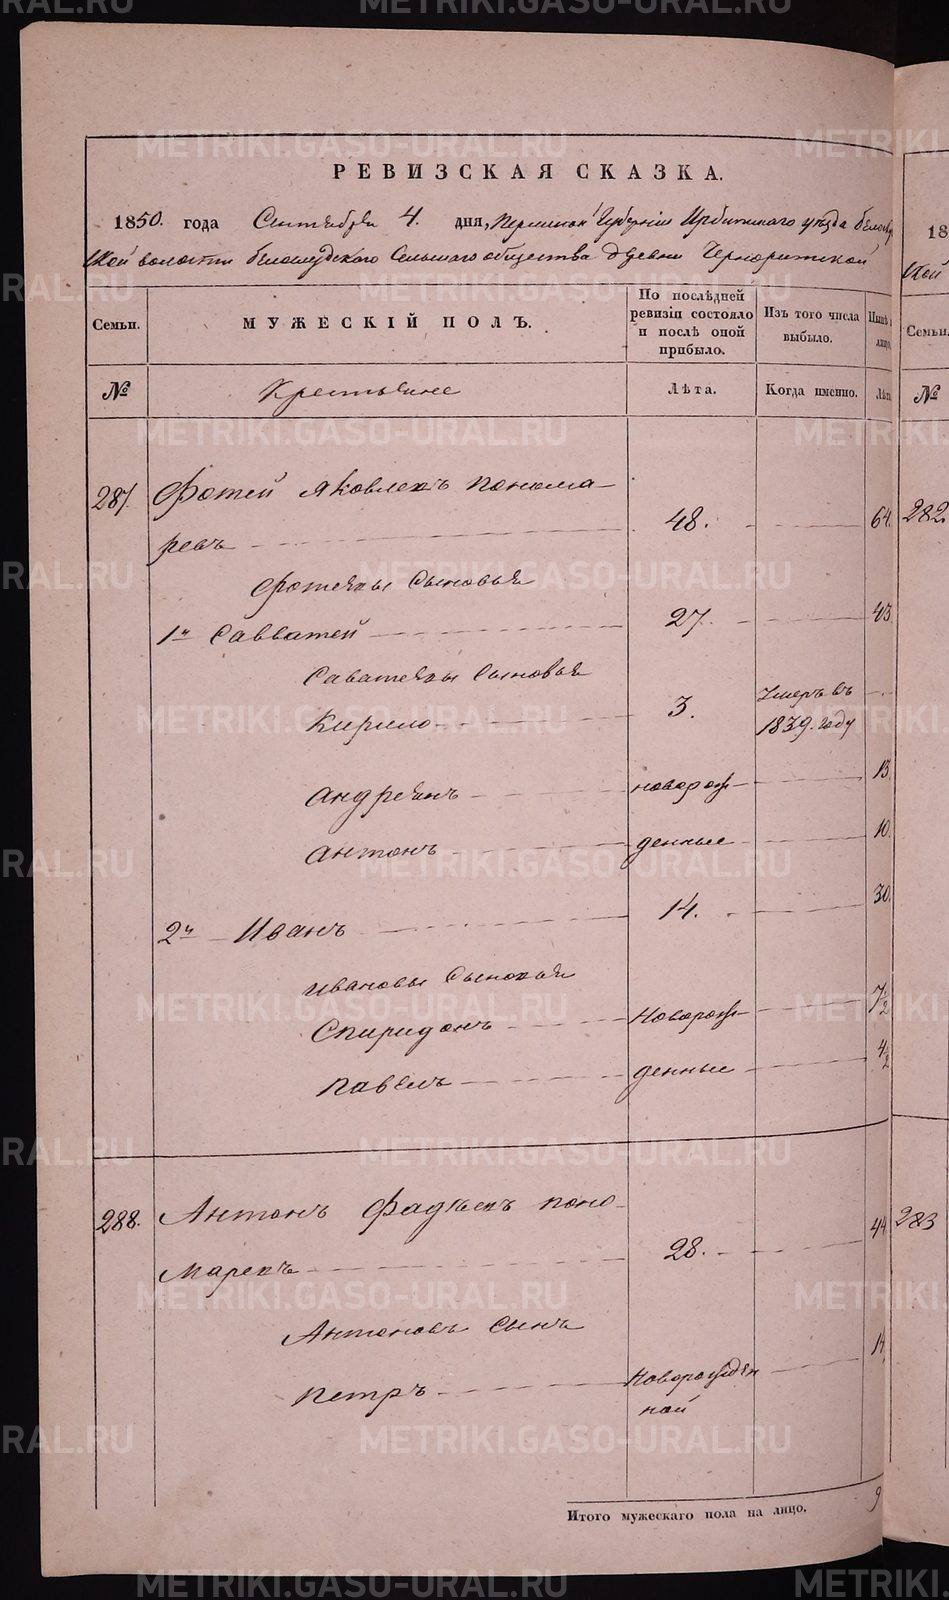 METRIKI.GASO-URAL.RU
РЕВИЗСКАЯ СКАЗКА.
1850. года Сентября 4. дня, Пермской Губернии Ирбитскаго уезда Белослуд
ской волости Белослудскаго Сельскаго общества деревни Чернорицкой
Семьи.
МУЖЕСКІЙ ПОЛЪ.
По послѣдней
ревизіи состояло
и послѣ оной
прибыло.
Изъ того числа
выбыло.
Нынѣ
лицо
№
Крестьяне
Лѣта.
Когда именно.
Лѣт
287.
Фотей Яковлевъ Понома-
ревъ
48.
64.
Фотеевы Сыновья
1й Савватей
27.
43
Саватеевы Сыновья
Кирило
3.
Умеръ въ
1839. году
Андреянъ
новорож-
13
Антонъ
денные
10.
2й Иванъ
14.
30.
Ивановы Сыновья
Спиридонъ
Новорож-
7 1/2
Павелъ
денные
4/2
288.
Антонъ Фадѣевъ Поно-
маревъ
28.
44
Антоновъ Сынъ
Петръ
Новорожден
ной
14
Итого мужескаго пола на лицо.
9
18
ской
Семьи.
№
282
283